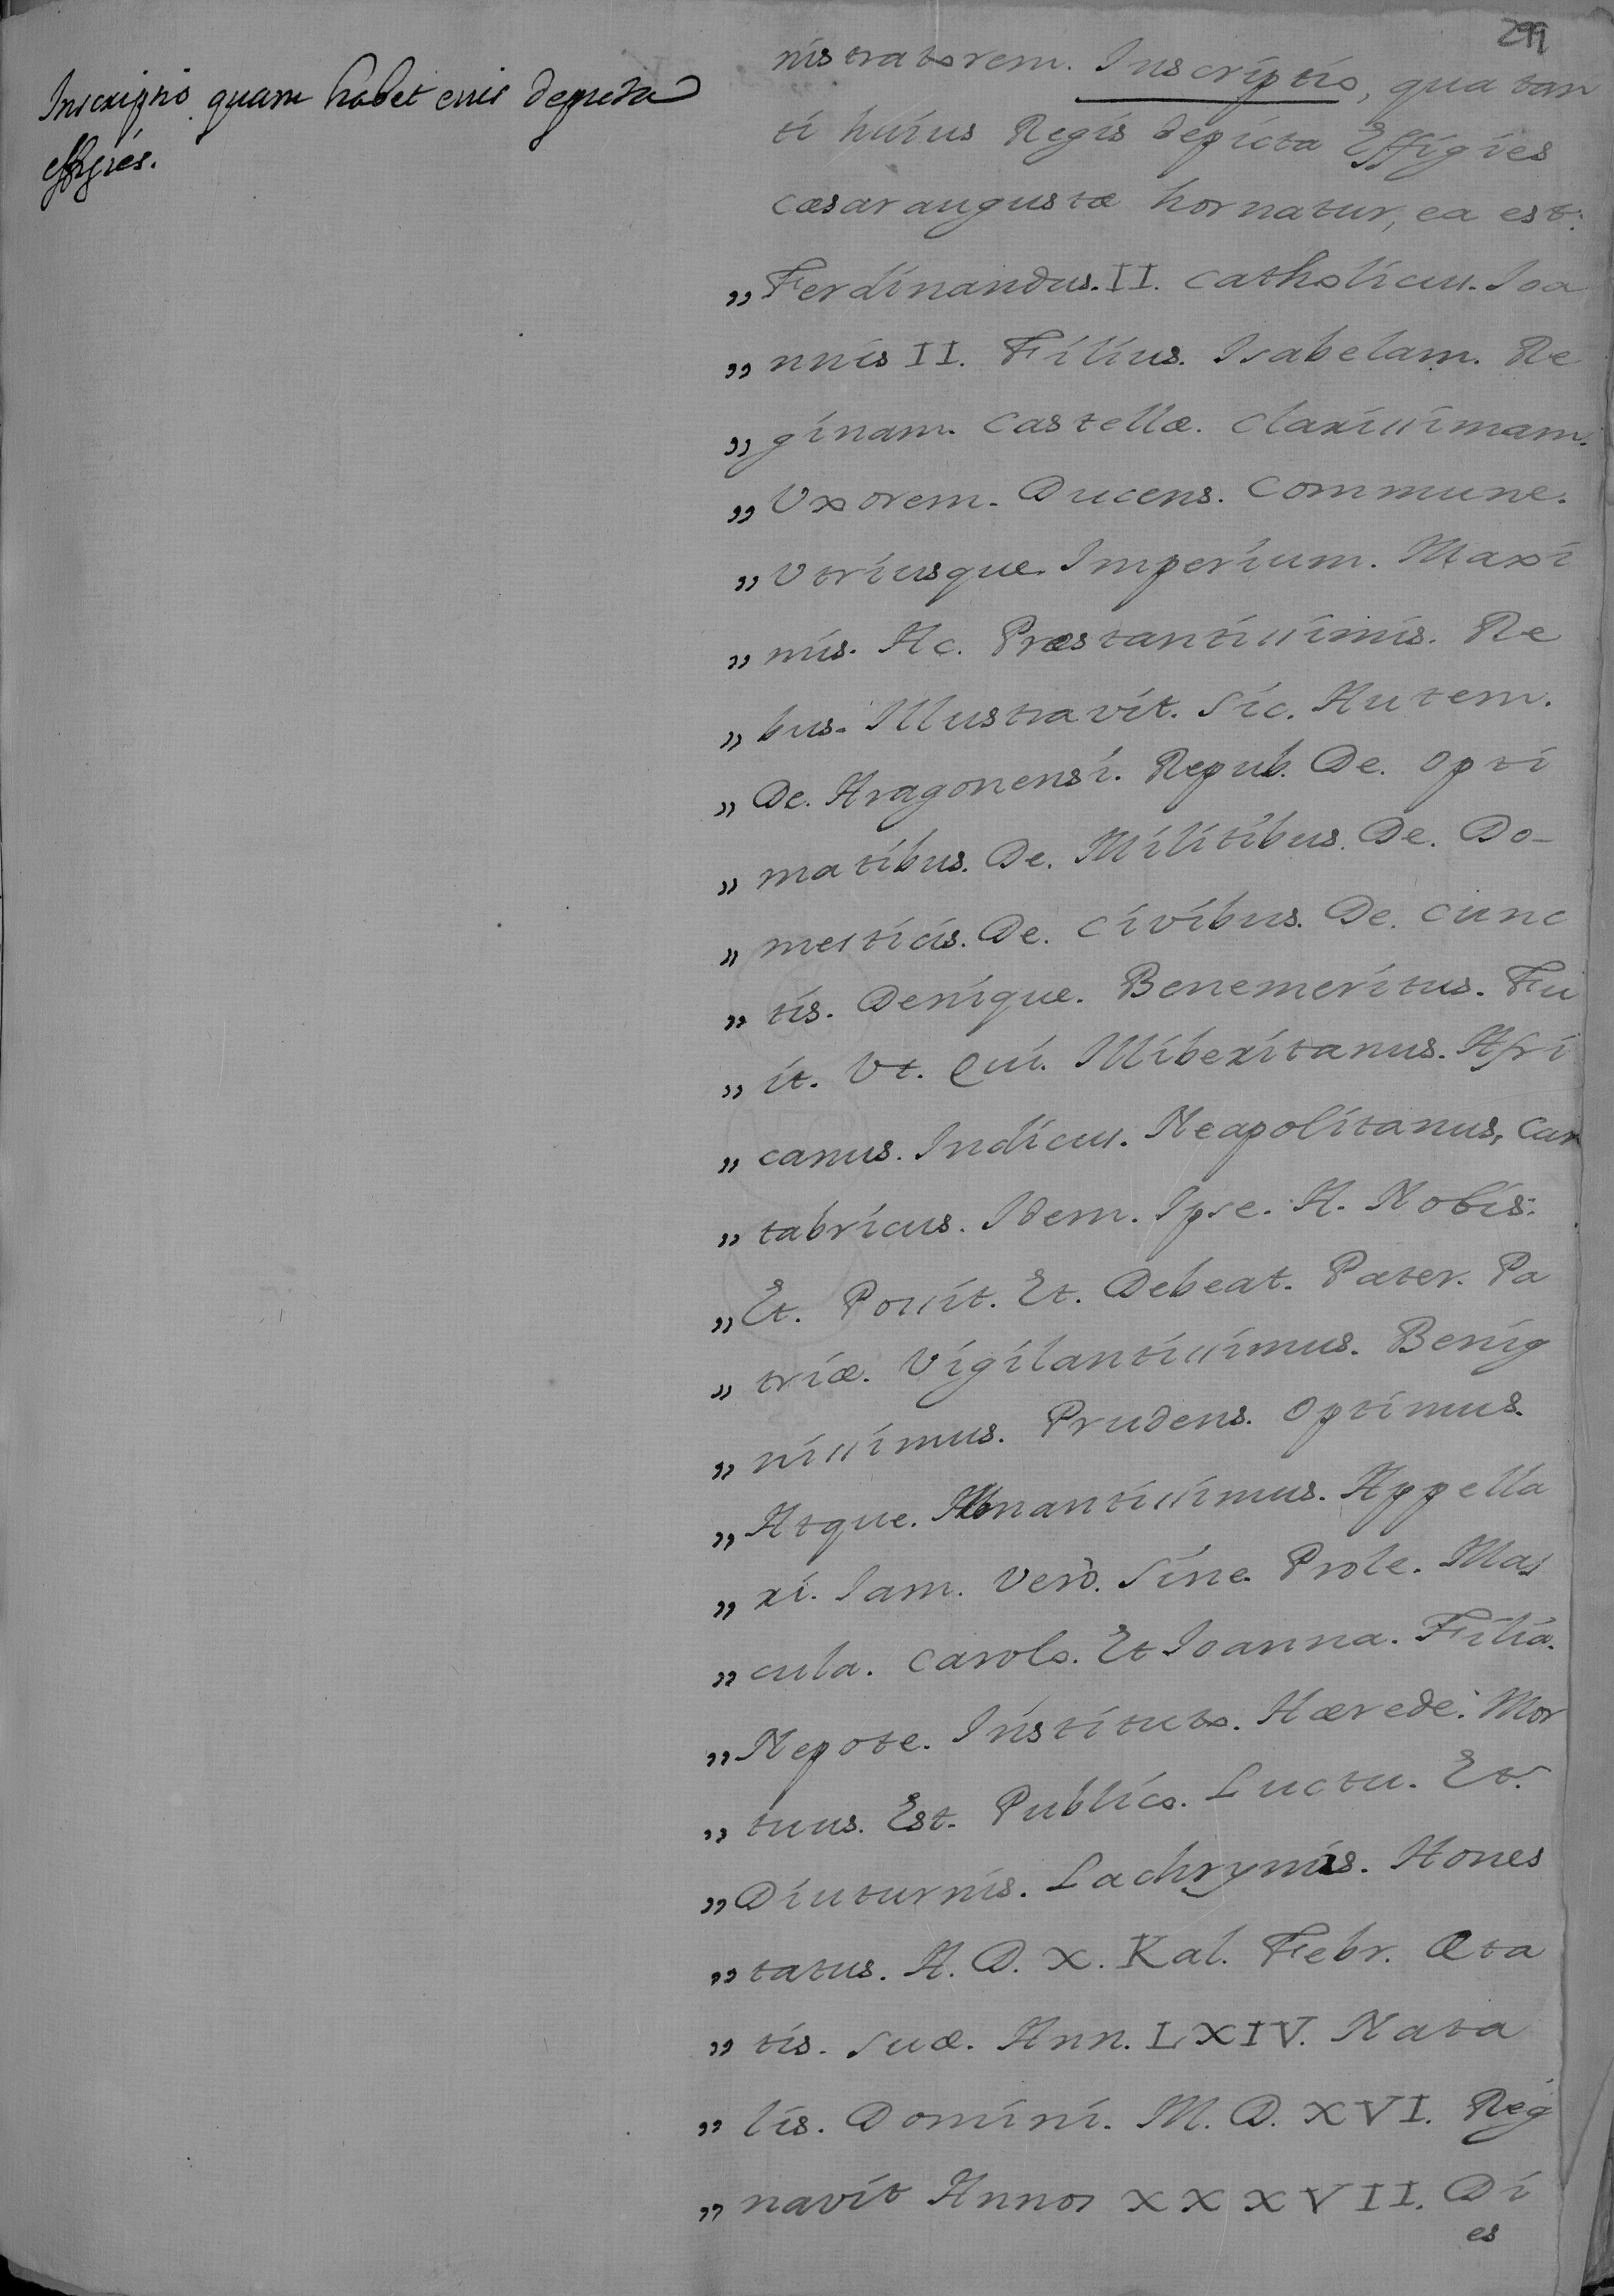 299
Inscripno quam habet eius depicta
effigies.
nistratorem. Inscriptio, qua tan
ti huius Regis depicta Effigies
cæsaraugustæ hornatur, ea est:
„ Ferdinandus. II. catholicus. Ioa
„ nnis II. Filius. Isabelam. Re
„ ginam. castellæ. clarissimam.
„ Vxorem. Ducens. commune.
„ Vtriusque. Imperium. Maxi
„ mis. Ac. Præstantissimis. Re
„ bus. Illustravit. Sic. Autem.
„ De. Aragonensi. Repub. De. opti
„ matibus. De. Militibus. De. Do-
„ mesticis. De. civibus. De. cunc
„ tis. Denique. Benemeritus. Fu
„ it. Vt. Qui. Illiberitanus. Afri
„ canus. Indicus. Neapolitanus, can
„ tabricus. Idem. Ipse. A. Nobis.
„ Et. Possit. Et. Debeat. Pater. Pa
„ triæ. Vigilantissimus. Benig
„ nissimus. Prudens. optimus.
„ Atque. Amantissimus. Appella
„ ri. Iam. Verò. Sine. Prole. Mas
„ cula. carolo. Et Ioanna. Filia.
„ Nepote. Instituto. Hærede. Mor
„ tuus. Est. Publico. Luctu. Et.
„ Diuturnis. Lachrymis. Hones
„ tatus. A. D. X. Kal. Febr. Æta
„ tis. Suæ. Ann. LXIV. Nata
„ lis. Domini. M. D. XVI. Reg
„ navit Annos XXXVII. Di
es